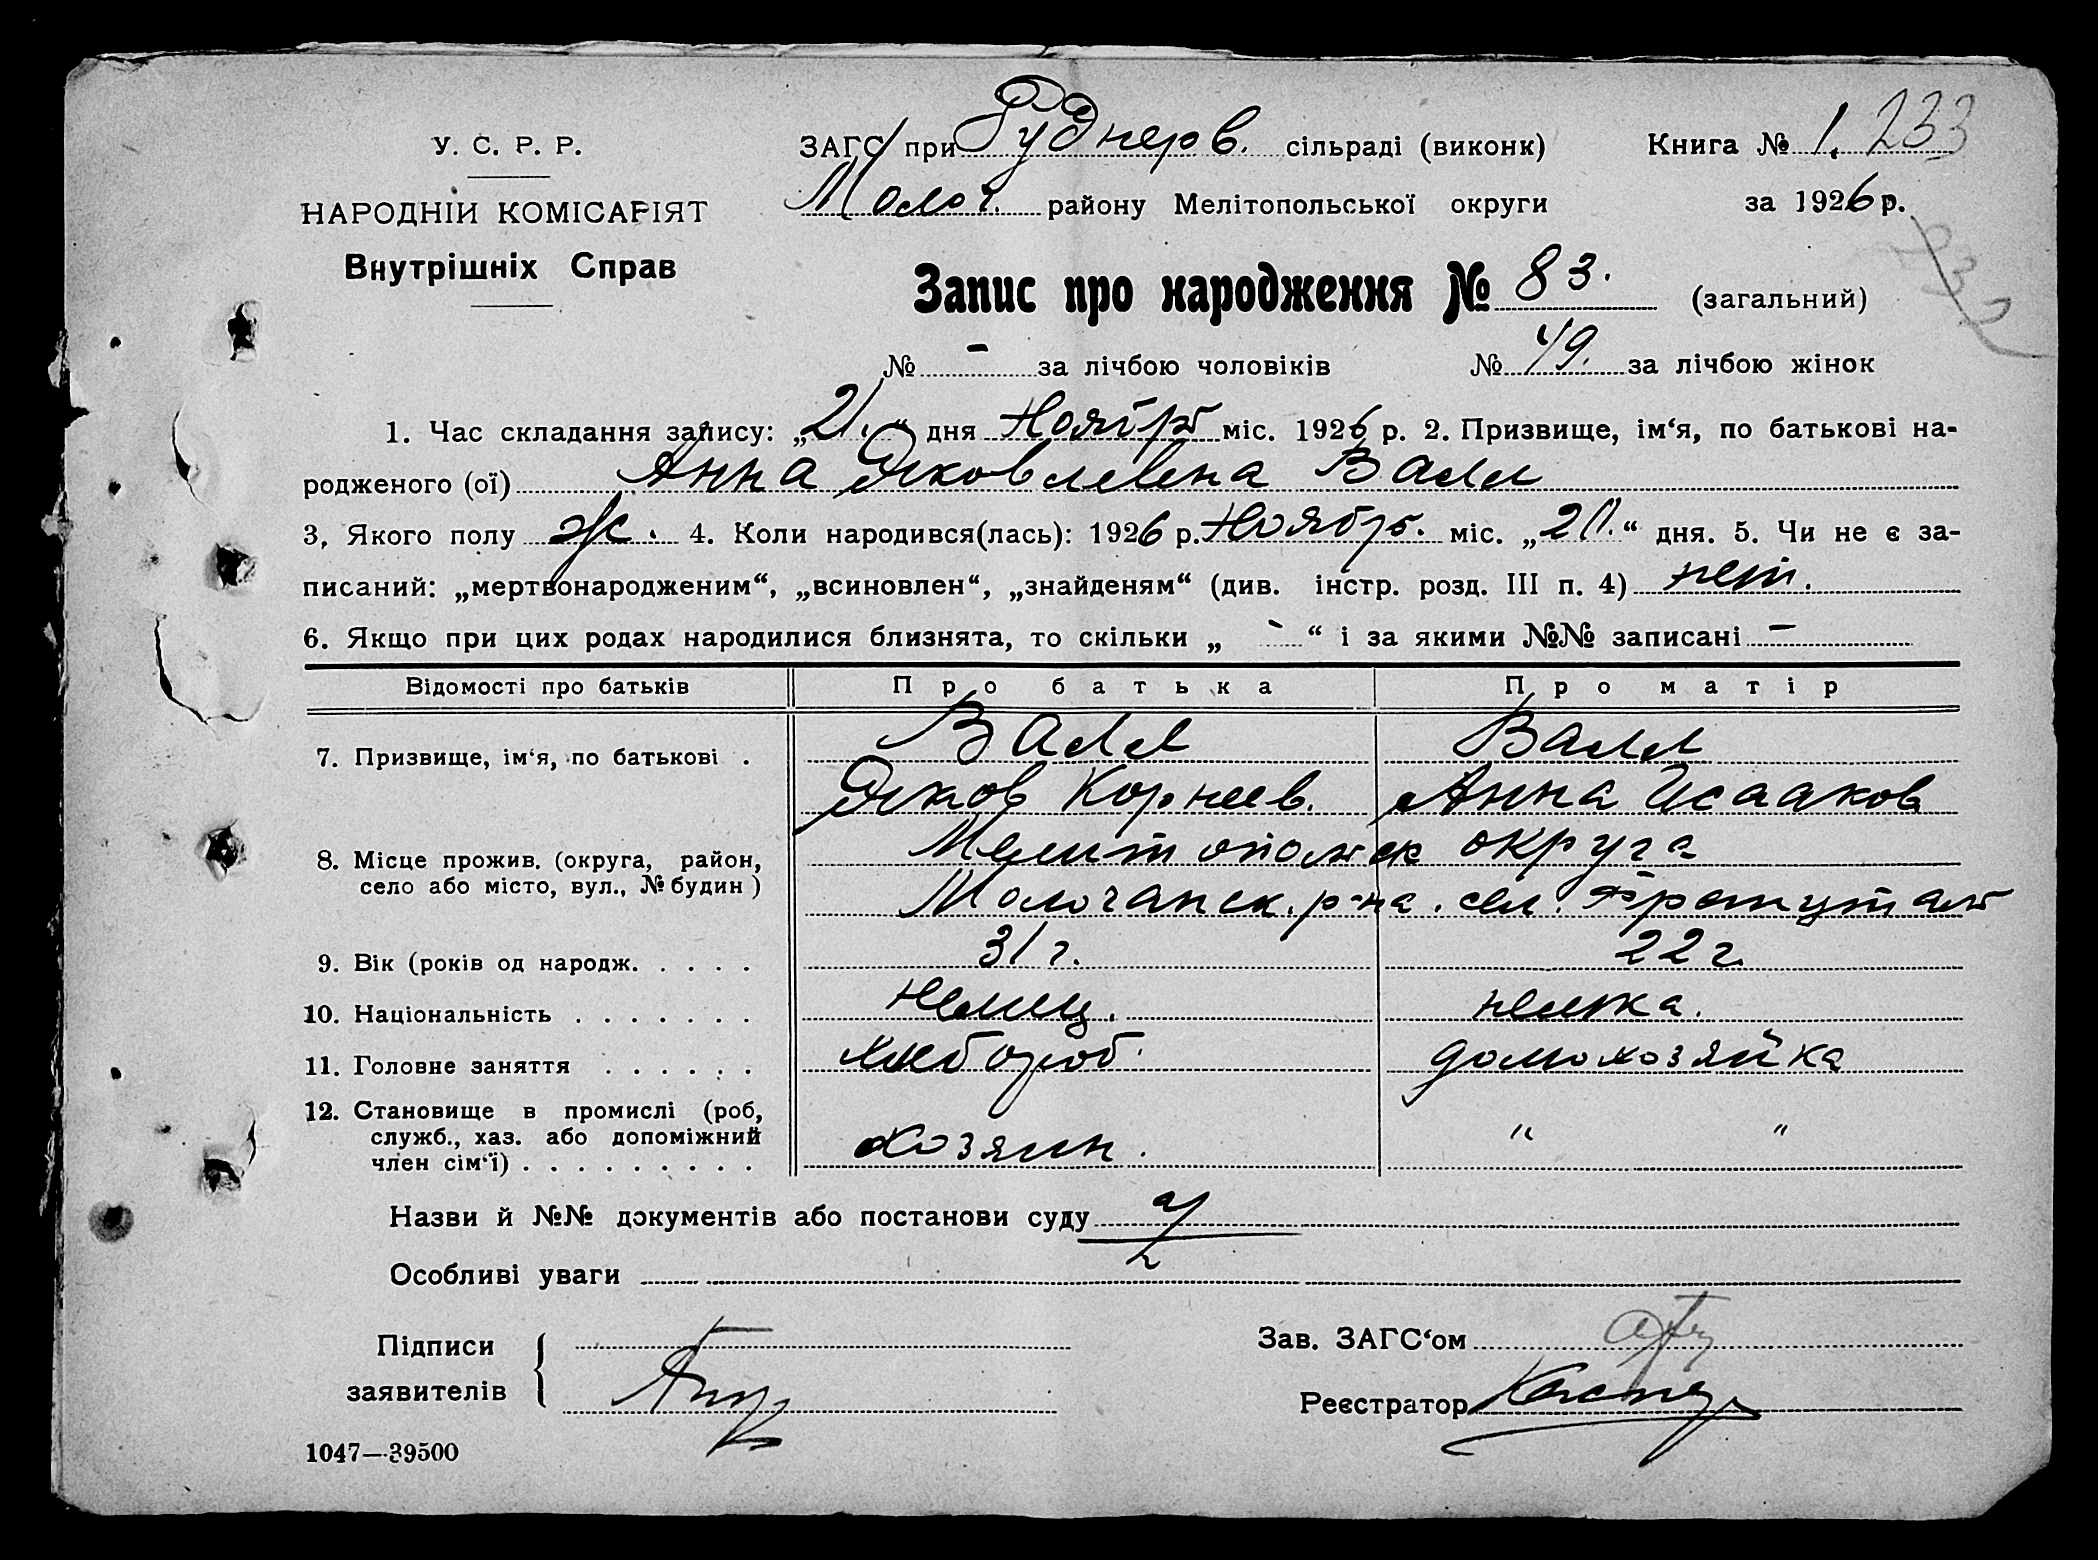 У. С. Р. Р.
НАРОДНІЙ КОМІСАРІЯТ
Внутрішніх Справ
ЗАГС при Руднерв. сільраді (виконк) Книга № 1. 233
Молоч. району Мелітопольської округи за 1926 р.
232
Запис про народження № 83. (загальний)
№ - за лічбою чоловіків № 49. за лічбою жінок
1. Час складання запису: „21.“ дня Ноября міс. 1926 р. 2. Призвище, ім‘я, по батькові на-
родженого (ої) Анна Яковлевна Валл
3. Якого полу Ж. 4. Коли народився(лась): 1926 р. Ноябр. міс. „20.“ дня. 5. Чи не є за-
писаний: „мертвонародженим“, „всиновлен“, „знайденям“ (див. інстр. розд. III п. 4) нет.
6. Якщо при цих родах народилися близнята, то скільки „ - “ і за якими №№ записані -
Відомості про батьків Про батька Про матір
7. Призвище, ім‘я, по батькові . Валл Валл
Яков Корнеев. Анна Исааков
8. Місце прожив. (округа, район, Мелитопольск округа
село або місто, вул., № будин) Молочанск. р-на. сел.
9. Вік (років од народж. . . . . 31 г. 22 г.
10. Національність . . . . . . . немец. немка.
11. Головне заняття . . . . . . хлебороб. домохозяйка
12. Становище в промислі (роб,
служб., хаз. або допоміжний
член сім‘ї) . . . . . . . . . хозяин. " "
Назви й №№ документів або постанови суду
Особливі уваги
Підписи Зав. ЗАГС‘ом
заявителів Реєстратор
1047—39500